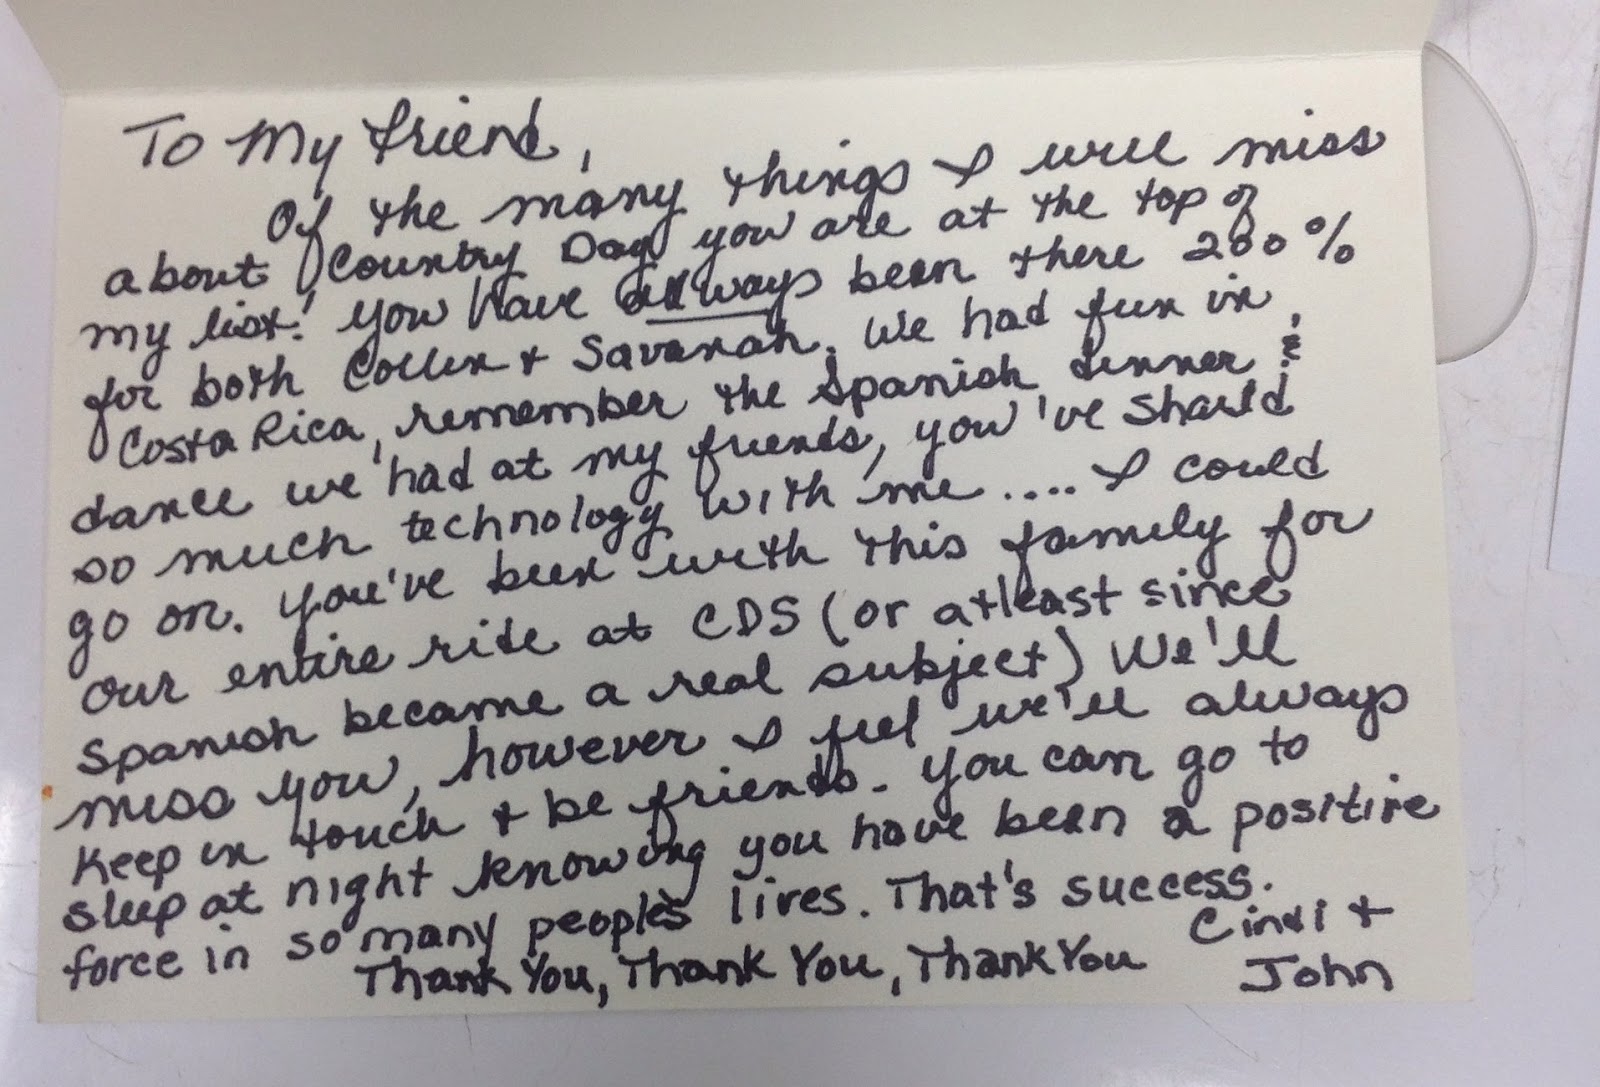 To My friend,
Of the many things I will miss
about Country Day you are at the top of
my list! You have always been there 200%
for both Collin + Savanah. We had fun in
Costa Rica, remember the Spanish dinner &
dance we had at my friends, you've shared
so much technology with me.... I could
go on. You've been with this family for
our entire ride at CDS (or atleast since
Spanish became a real subject) We'll
miss you, however I feel we'll always
keep in touch + be friends. You can go to
sleep at night knowing you have been a positive
force in so many people's lives. That's success.
Thank You, Thank You, Thank You Cindi +
John